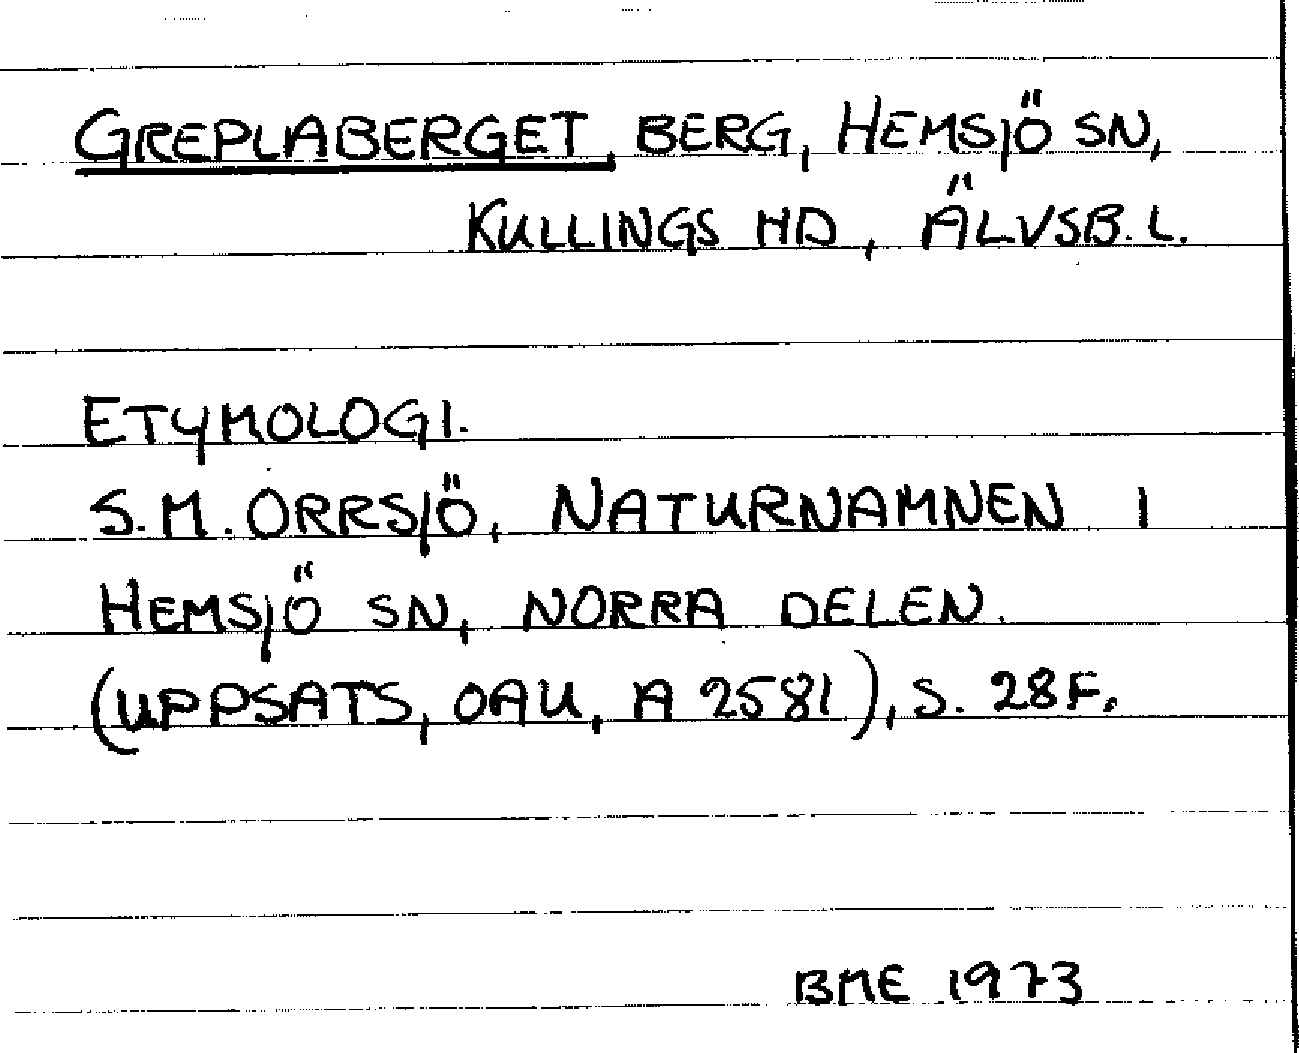 GREPLABERGET, BERG, HEMSJÖ SN,
KULLINGS HD, ÄLVSB. L.
ETYMOLOGI.
S.M. ORRSJÖ, NATURNAMNEN I
HEMSJÖ SN, NORRA DELEN.
(UPPSATS, OAU, A 2581), S. 28F.
BME 1973